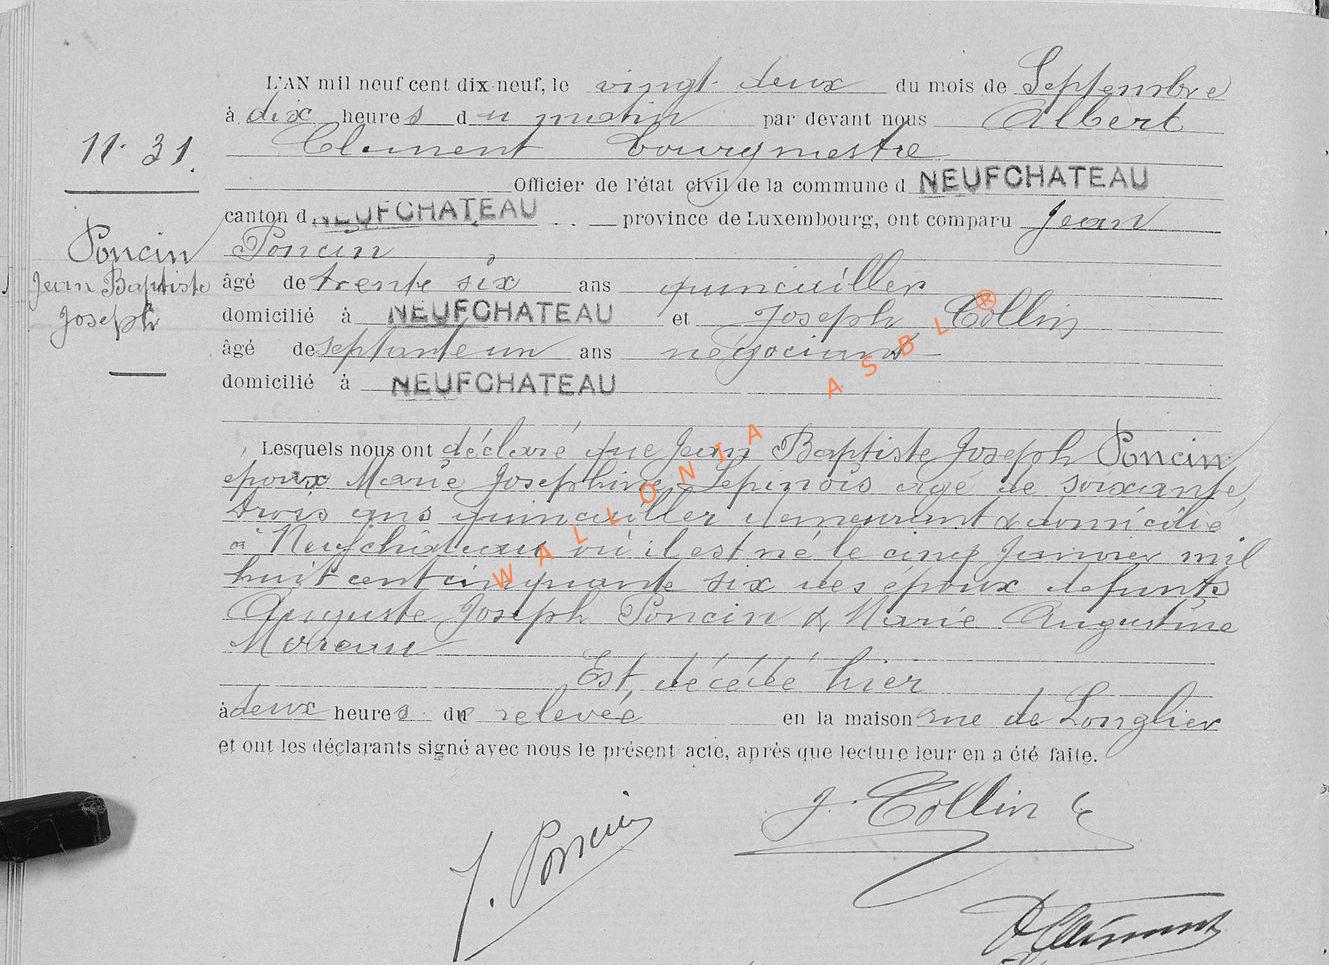 L'AN mil neuf cent dix-neuf, le vingt-deux du mois de Septembre
à dix heures du matin par devant nous Albert
11. 31.
Clément bourgmestre
Officier de l'état civil de la commune d NEUFCHATEAU
canton d NEUFCHATEAU province de Luxembourg, ont comparu Jean
Poncin
Poncin
Jean Baptiste
Joseph
âgé de trente six ans quincailler
domicilié à NEUFCHATEAU et Joseph Collin
âgé de septante un ans négociant
domicilié à NEUFCHATEAU
Lesquels nous ont déclaré que Jean Baptiste Joseph Poncin
époux Marie Josephine Lepinois agé de soixante
trois ans quincailler demeurant & domicilié
à Neufchâteau où il est né le cinq Janvier mil
huit cent cinquante six des époux défunts
Auguste Joseph Poncin & Marie Augustine
Moreau
Est décédé hier
à deux heures de relevée en la maison rue de Longlier
et ont les déclarants signé avec nous le présent acte, après que lecture leur en a été faite.
J. Collin
J. Poncin
A Clément
WALLONIA ASBL ®